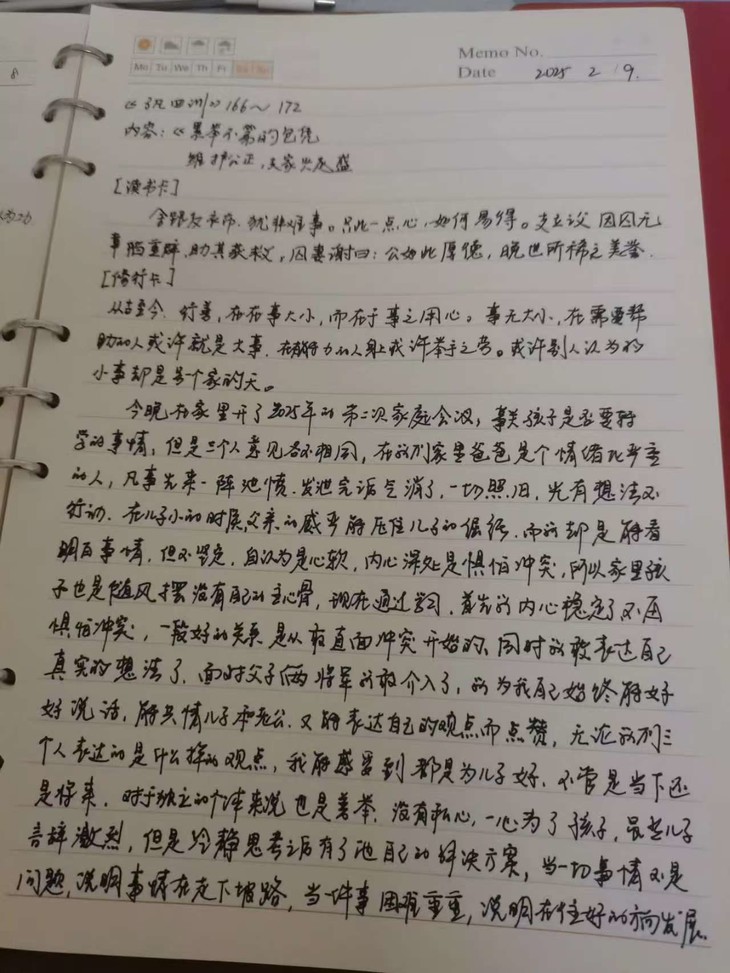 8
Memo No.
Mo Tu We Th Fr Sa Su
Date 2025 2 9.
《了凡四训》166～172
内容:《
维护公正,
[读书卡]
舍银及米布,犹非难事。只此一点心,如何易得。支立议 因囚无
事陷重辟,助其获救,囚妻谢曰:公如此厚德,晚世所稀之美誉.
[修行卡]
从古至今,行善,不在事大小,而在于事之用心。事无大小,在需要帮
助的人或许就是大事,在有能力的人身上或许举手之劳。或许别人认为的
小事却是另个家的天。
今晚在家里开了2025年的第二次家庭会议,事关孩子是否要转
学的事情,但是三个人意见各不相同,在我们家里爸爸是个情绪比严重
的人,凡事先来一阵,发泄完话气消了,一切照旧,光有想法不
行动.在儿子小的时候父亲的威严能压住儿子的倔强,而我却是能看
明白事情,但不坚定,自认为是心软,内心深处是惧怕冲突,所以家里孩
子也是随风摆没有自己的主心骨,现在通过学习,首先我内心稳定了不再
惧怕冲突,一段好的关系是从敢直面冲突开始的,同时我敢表达自己
真实的想法了,面对父子俩将军我敢介入了,我为我自己始终能好
好说话,能共情儿子和老公,又能表达自己的观点而点赞,无论我们三
个人表达的是什么样的观点,我能感受到都是为儿子好,不管是当下还
是将来,对于独立的个体来说也是善举,没有私心,一心为了孩子,虽然儿子
言辞激烈,但是冷静思考之后有了他自己的解决方案,当一切事情不是
问题,说明事情在走下坡路,当一件事困难重重,说明在往好的方向发展.